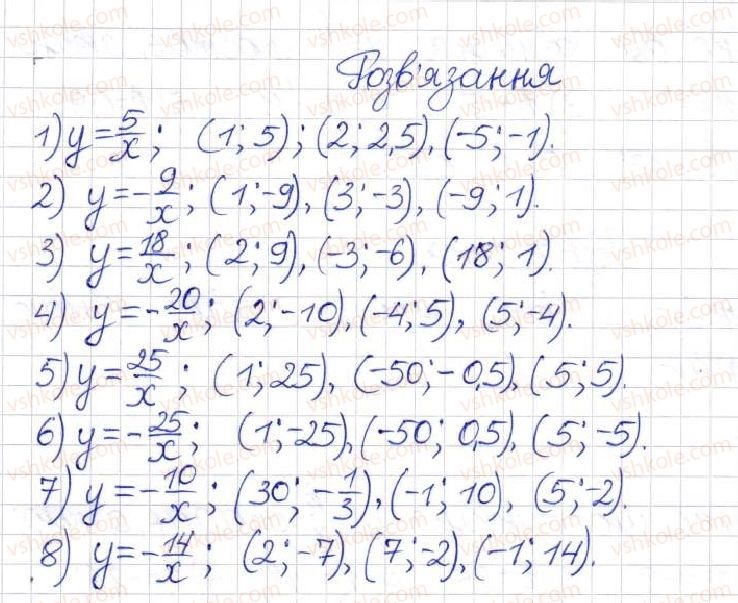 Розв'язання
1) y = 5/x; (1; 5); (2; 2,5), (-5; -1).
2) y = -9/x; (1; -9), (3; -3), (-9; 1).
3) y = 18/x; (2; 9), (-3; -6), (18; 1).
4) y = -20/x; (2; -10), (-4; 5), (5; -4).
5) y = 25/x; (1; 25), (-50; -0,5), (5; 5).
6) y = -25/x; (1; -25), (-50; 0,5), (5; -5).
7) y = -10/x; (30; -1/3), (-1; 10), (5; -2).
8) y = -14/x; (2; -7), (7; -2), (-1; 14).
vshkole.com